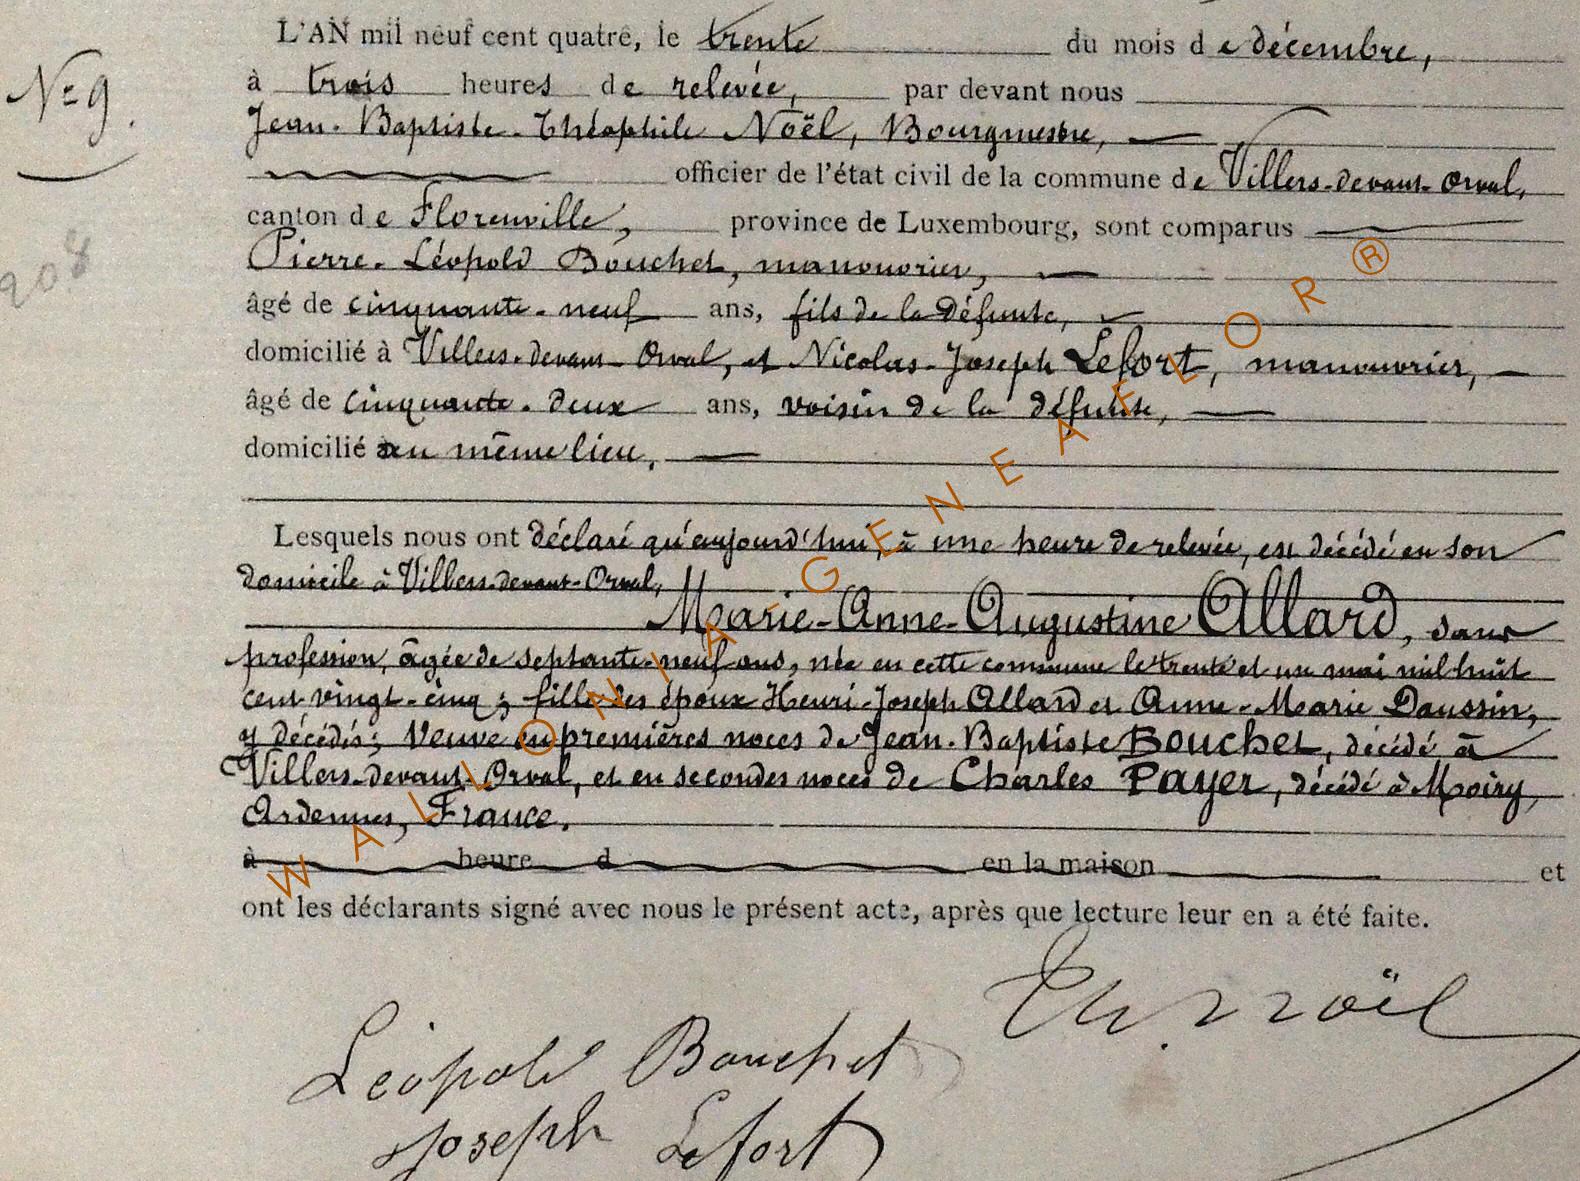 L'AN mil neuf cent quatre, le trente du mois de décembre,
N° 9.
à trois heures de relevée, par devant nous
Jean-Baptiste-Théophile Noël, Bourgmestre,
officier de l'état civil de la commune de Villers-devant-Orval,
canton de Florenville, province de Luxembourg, sont comparus
208
Pierre-Léopold Bouchet, manouvrier,
âgé de cinquante-neuf ans, fils de la défunte,
domicilié à Villers-devant-Orval, et Nicolas-Joseph Lefort, manouvrier,
âgé de cinquante-deux ans, voisin de la défunte,
domicilié au même lieu,
Lesquels nous ont déclaré qu'aujourd'hui, à une heure de relevée, est décédé en son
domicile à Villers-devant-Orval,
Marie-Anne-Augustine Allard, sans
profession, âgée de septante-neuf ans, née en cette commune le trente et un mai mil huit
cent vingt-cinq; fille des époux Henri-Joseph Allard et Anne-Marie Daussin,
y décédés; Veuve en premières noces de Jean-Baptiste Bouchet, décédé à
Villers-devant-Orval, et en secondes noces de Charles Payer, décédé à Moiry,
Ardennes, France.
à heure d en la maison et
ont les déclarants signé avec nous le présent acte, après que lecture leur en a été faite.
Th. Noël
Léopold Bouchet
Joseph Lefort
WALLONIA-GENEAFLOR®